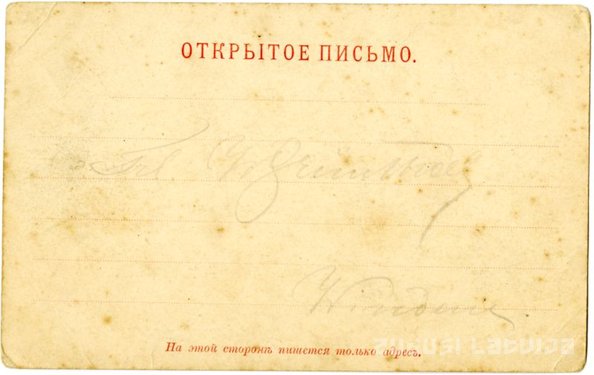 ОТКРЫТОЕ ПИСЬМО.
Frl.
Windau
На этой сторонѣ пишется только адресъ.
zudusi Latvija